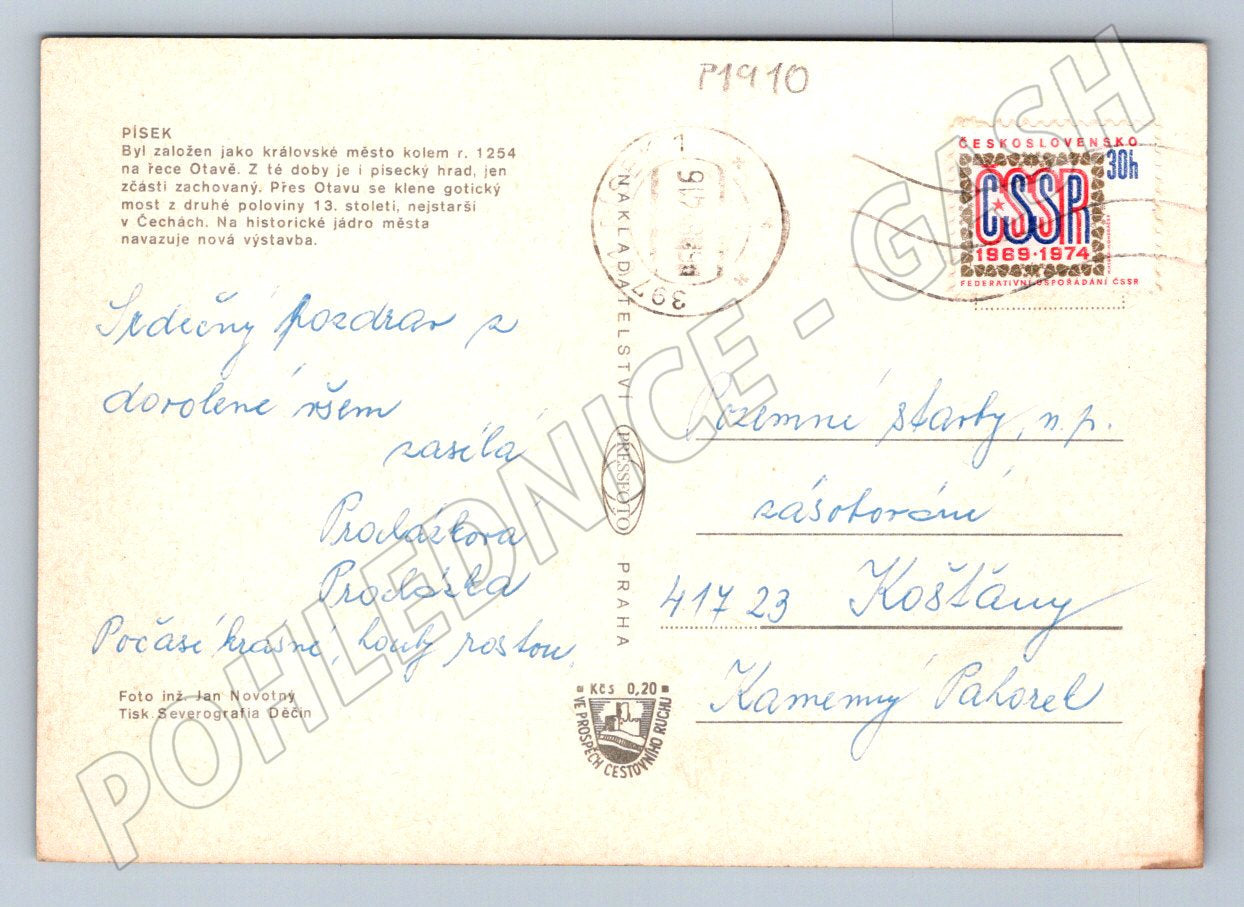 P1910
PÍSEK
Byl založen jako královské město kolem r. 1254
na řece Otavě. Z té doby je i písecký hrad, jen
zčásti zachovaný. Přes Otavu se klene gotický
most z druhé poloviny 13. století, nejstarší
v Čechách. Na historické jádro města
navazuje nová výstavba.
Srdečný pozdrav z
dovolené všem
zasílá
Procházková
Procházka
Počasí krásné, houby rostou.
Foto inž. Jan Novotný
Tisk Severografia Děčín
NAKLADATELSTVÍ PRESSFOTO PRAHA
Kčs 0,20
VE PROSPĚCH CESTOVNÍHO RUCHU
397 1
ČESKOSLOVENSKO
30h
ČSSR
1969·1974
FEDERATIVNÍ USPOŘÁDÁNÍ ČSSR
Pozemné stavby, n.p.
zásobování
417 23 Košťany
Kamenný Pahorek
POHLEDNICE - GASH